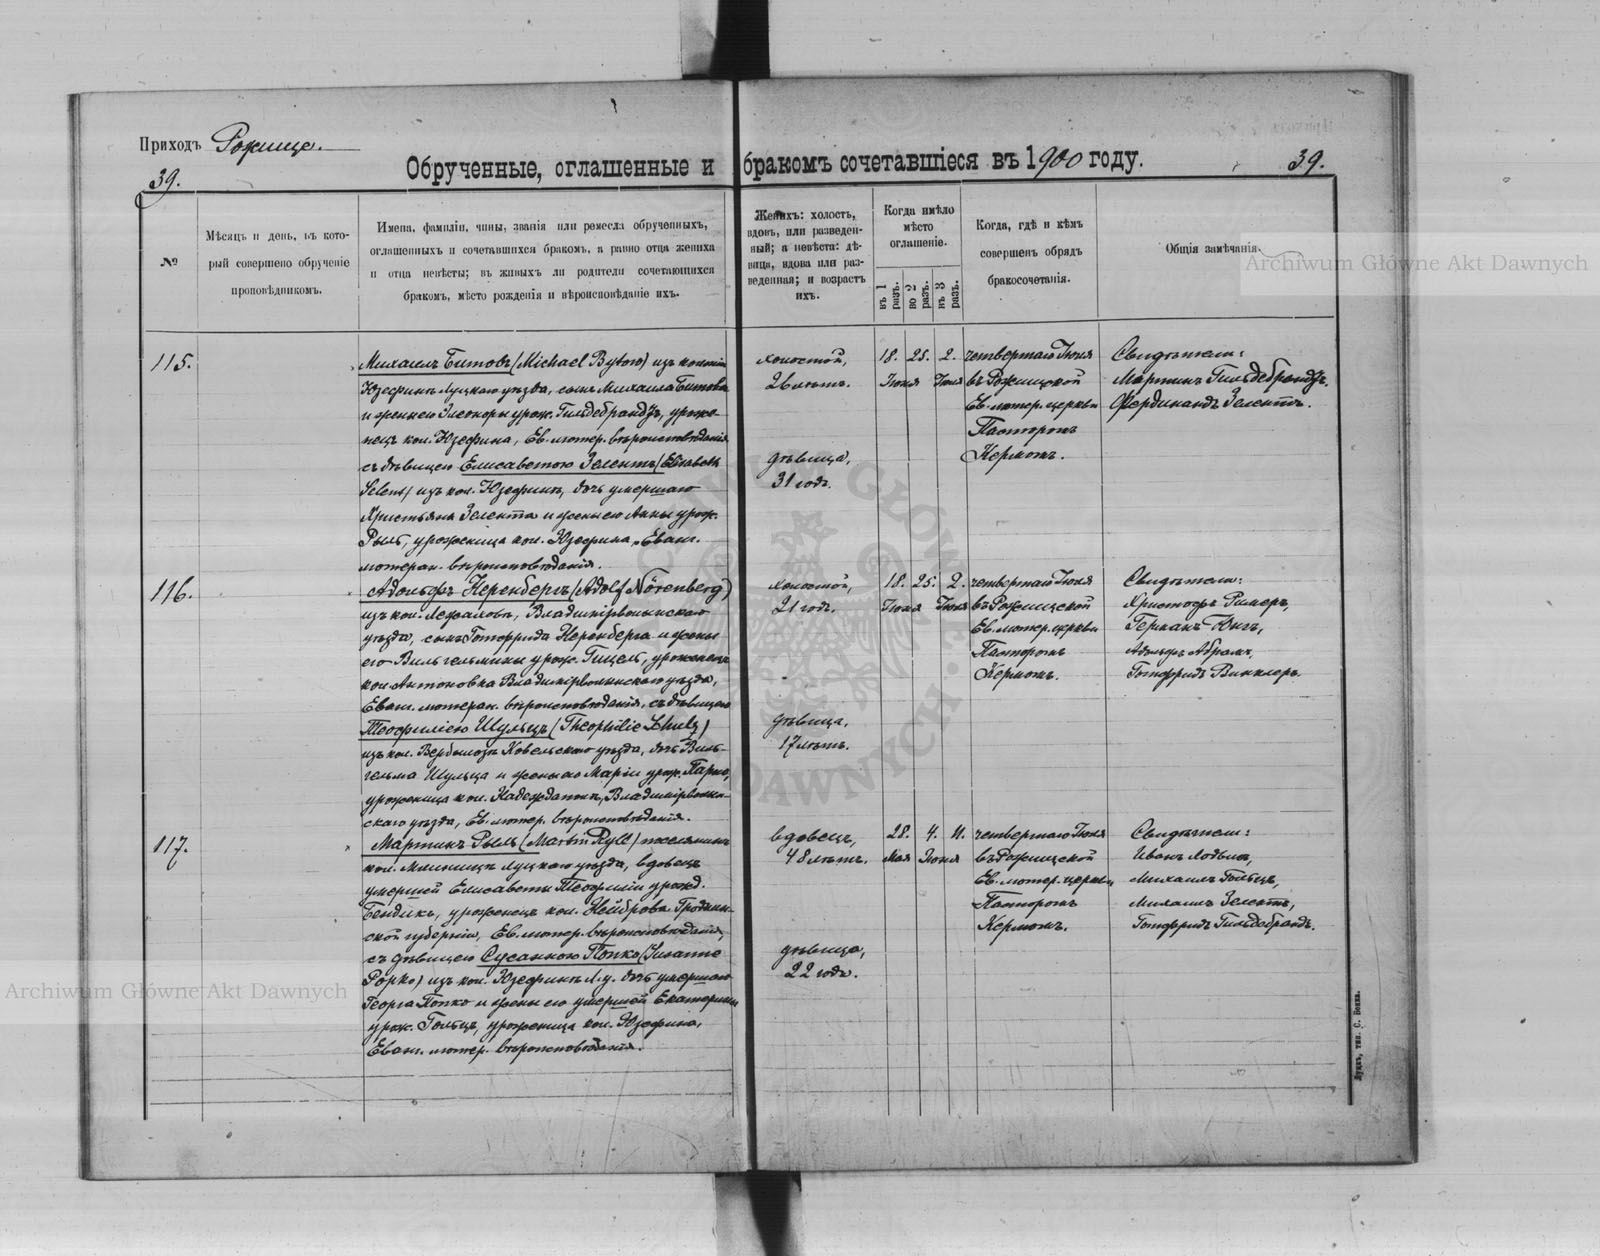 Приходъ Рожище.
39.
Обрученные, оглашенные и бракомъ сочетавшіеся въ 1900 году.
39.
№
Мѣсяцъ и день, въ кото-
рый совершено обрученіе
проповѣдникомъ.
Имена, фамиліи, чины, званія или ремесла обрученныхъ,
оглашенныхъ и сочетавшихся бракомъ, а равно отца жениха
и отца невѣсты; въ живыхъ ли родители сочетающихся
бракомъ, мѣсто рожденія и вѣроисповѣданіе ихъ.
Женихъ: холостъ,
вдовъ, или разведен-
ный; а невѣста: дѣ-
вица, вдова или раз-
веденная; и возрастъ
ихъ.
Когда имѣло
мѣсто
оглашеніе.
въ 1 разъ.
во 2 разъ.
въ 3 разъ.
Когда, гдѣ и кѣмъ
совершенъ обрядъ
бракосочетанія.
Общія замѣчанія.
Archiwum Główne Akt Dawnych
115.
Михаилъ Битовъ (Michael Bytow) изъ колоніи
Юзефинъ Луцкаго уѣзда, сынъ Михаила Битова
и жены его Элеоноры урож. Гильдебрандтъ, уроже-
нецъ кол. Юзефина, Ев. лютер. вѣроисповѣданія
съ дѣвицею Елисаветою Зелентъ (Elisabeth
Selent) изъ кол. Юзефинъ, дочь умершаго
Христьяна Зелента и жены его Анны урож.
Рыль, уроженица кол. Юзефина, Еванг.
лютеран. вѣроисповѣданія.
холостой,
26 лѣтъ.
дѣвица,
31 годъ.
18. 25. 2.
Іюня Іюля
четвертаго Іюля
въ Рожищской
Ев. лютер. церкви
Пасторомъ
Кермомъ.
Свидѣтели:
Мартинъ Гильдебрандтъ,
Фердинандъ Зелентъ.
116.
Адольфъ Неренбергъ (Adolf Nörenberg)
изъ кол. Владимірволынскаго
уѣзда, сынъ Готфрида Неренберга и жены
его Вильгельмины урож. Гицель, уроженецъ
кол. Антоновка Владимірволынскаго уѣзда,
Еванг. лютеран. вѣроисповѣданія, съ дѣвицею
Теофиліею Шульцъ (Theophilie Schulz)
изъ кол. Вербополь Ковельскаго уѣзда, дочь Виль-
гельма Шульца и жены его Маріи урож.
уроженица кол. Владимірволын-
скаго уѣзда, Ев. лютер. вѣроисповѣданія.
холостой,
21 годъ.
дѣвица,
17 лѣтъ.
18. 25. 2.
Іюня Іюля
четвертаго Іюля
въ Рожищской
Ев. лютер. церкви
Пасторомъ
Кермомъ.
Свидѣтели:
Христофъ Римеръ,
Германъ Юнгъ,
Адольфъ Абрамъ,
Готфридъ Винклеръ.
117.
Мартинъ Рыль (Martin Ryll) поселянинъ
кол. Луцкаго уѣзда, вдовецъ
умершей Елисаветы Теофиліи урожд.
Бендикъ, уроженецъ кол. Нейброва Гроднен-
ской губерніи, Ев. лютер. вѣроисповѣданія,
съ дѣвицею Сусанною Попко (Susanne
Popko) изъ кол. Юзефинъ Л. у. дочь умершаго
Георга Попко и жены его умершей Екатерины
урож. Гольцъ, уроженица кол. Юзефина,
Еванг. лютер. вѣроисповѣданія.
вдовецъ,
48 лѣтъ.
дѣвица,
22 года.
28. 4. 11.
Мая Іюня
четвертаго Іюля
въ Рожищской
Ев. лютер. церкви
Пасторомъ
Кермомъ.
Свидѣтели:
Иванъ
Михаилъ Гольцъ,
Михаилъ Зелентъ,
Готфридъ Гильдебрандъ.
Archiwum Główne Akt Dawnych
Луцкъ, тип. С. Бокка.